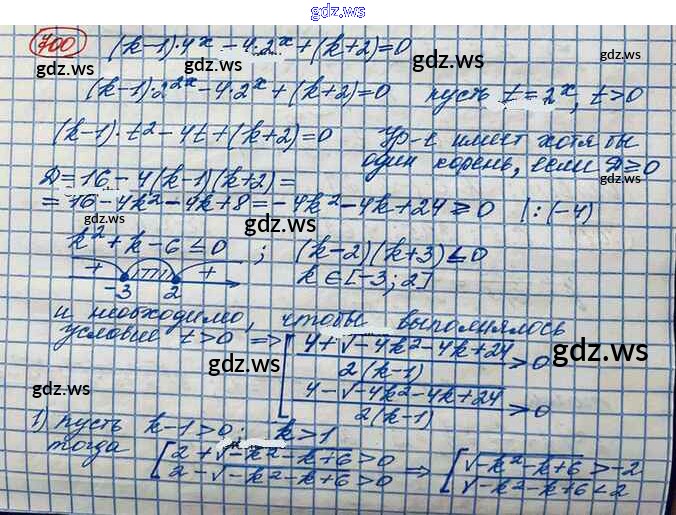 gdz.ws
700 (k-1)·4^x - 4·2^x + (k+2) = 0
gdz.ws gdz.ws gdz.ws
(k-1)·2^{2x} - 4·2^x + (k+2) = 0 пусть t = 2^x, t > 0
(k-1)·t² - 4t + (k+2) = 0 Ур-е имеет хотя бы
один корень, если D ≥ 0
D = 16 - 4(k-1)(k+2) =
gdz.ws gdz.ws gdz.ws
= 16 - 4k² - 4k + 8 = -4k² - 4k + 24 ≥ 0 |:(-4)
k² + k - 6 ≤ 0 ; (k-2)(k+3) ≤ 0
+ + k ∈ [-3; 2]
-3 2
и необходимо, чтобы выполнялось
условие t > 0 => [ (4 + √(-4k² - 4k + 24)) / (2(k-1)) > 0
gdz.ws gdz.ws
(4 - √(-4k² - 4k + 24)) / (2(k-1)) > 0
gdz.ws gdz.ws gdz.ws
1) пусть k-1 > 0; k > 1
тогда [ 2 + √(-k² - k + 6) > 0 => [ √(-k² - k + 6) > -2
2 - √(-k² - k + 6) > 0 √(-k² - k + 6) < 2
gdz.ws